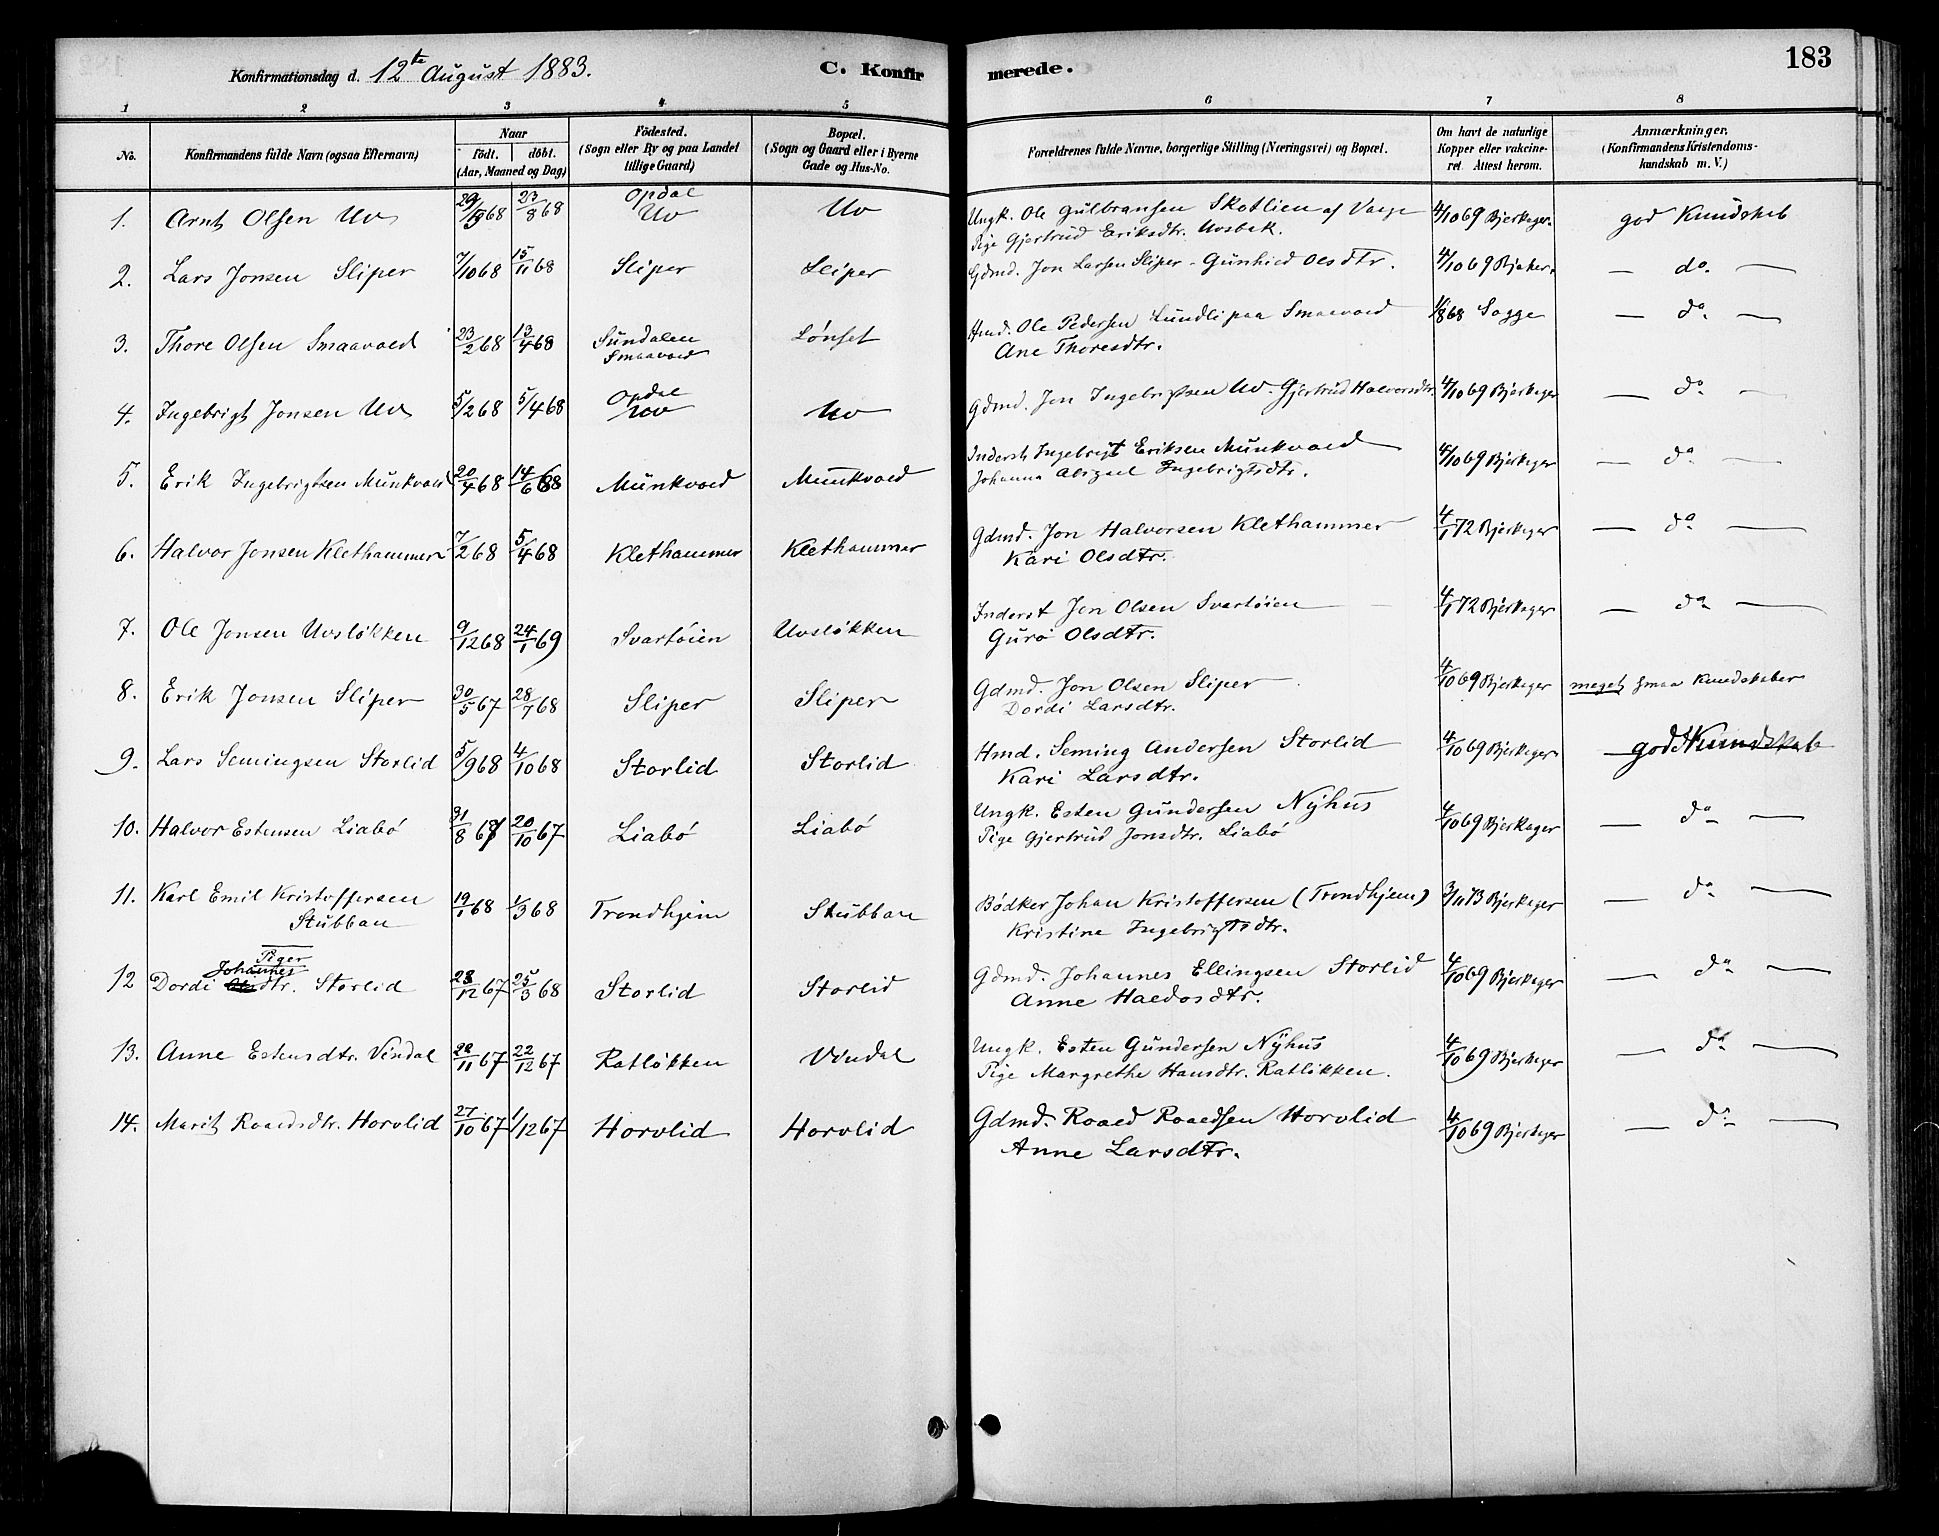 Konfirmationsdag d. 12te August 1883. C. Konfirmerede. 183
1 2 3 4 5 6 7 8
No. Konfirmandens fulde Navn (ogsaa Efternavn) Naar födt. döbt. (Aar, Maaned og Dag) Födested. (Sogn eller By og paa Landet tillige Gaard) Bopæl. (Sogn og Gaard eller i Byerne Gade og Hus-No. Forældrenes fulde Navne, borgerlige Stilling (Næringsvei) og Bopæl. Om havt de naturlige Kopper eller vakcineret Attest herom. Anmærkninger. (Konfirmandens Kristendomskundskab m. V.)
1. Arnt Olsen Uv 68 23/8 68 Opdal Uv Uv Ungk. Ole Gulbransen Skotlien af Vaage 4/10 69 Bjerkager. god Kundskab
Pige Gjertrud Eriksdtr. Uvsbak.
2. Lars Jonsen Sliper 7/10 68 15/11 68 Sliper Sliper Gdmd. Jon Larsen Sliper - Gunhild Olsdtr. 4/10 69 Bjeker. — do. —
3. Thore Olsen Smaavold 23/2 68 13/4 68 Sundalen Smaavold Lønset Hmd. Ole Pedersen Lundli paa Smaavold 1/8 68 Sogge — do —
Ane Thoresdtr.
4. Ingebrigt Jonsen Uv 5/2 68 5/4 68 Opdal Uv Uv Gdmd. Jon Ingebrigtsen Uv. Gjertrud Halvorsdtr. 4/10 69 Bjerkager — do —
5. Erik Ingebrigtsen Munkvold 20/4 68 14/6 68 Munkvold Munkvold Inderst Ingebrigt Eriksen Munkvold 4/10 69 Bjerkager — do —
Johanna Abigael Ingebrigtsdtr.
6. Halvor Jonsen Klethammer 7/2 68 5/4 68 Klethammer Klethammer Gdmd. Jon Halvorsen Klethammer 4/1 72 Bjerkager — do —
Kari Olsdtr.
7. Ole Jonsen Uvsløkken 9/12 68 24/1 69 Svartøien Uvsløkken Inderst Jon Olsen Svartøien 4/1 72 Bjerkager — do —
Guro Olsdtr.
8. Erik Jonsen Sliper 30/5 67 28/7 68 Sliper Sliper Gdmd. Jon Olsen Sliper 4/10 69 Bjerkager meget smaa Kundskaber
Dordi Larsdtr.
9. Lars Semingsen Storlid 5/9 68 4/10 68 Storlid Storlid Hmd. Seming Andersen Storlid 4/10 69 Bjerkager. god Kundskab
Kari Larsdtr.
10. Halvor Estensen Liabö 31/8 67 20/10 67 Liabö Liabö Ungk. Esten Gundersen Nyhus 4/10 69 Bjerkager — do —
Pige Gjertrud Jonsdtr. Liabö
11. Karl Emil Kristoffersen Stubban 19/1 68 1/3 68 Trondhjem Stubban Bødker Johan Kristoffersen (Trondhjem) 3/11 73 Bjerkager — do —
Kristine Ingebrigtsdtr.
Piger
12 Dordi Johannesdtr. Storlid 28/12 67 25/3 68 Storlid Storlid Gdmd. Johannes Ellingsen Storlid 4/10 69 Bjerkager — do —
Anne Haldosdtr.
13. Anne Estensdtr. Vindal 67 22/12 67 Ratløkken Vindal Ungk. Esten Gundersen Nyhus 4/10 69 Bjerkager — do —
Pige Margrethe Hansdtr. Ratløkken.
14. Marit Roaldsdtr. Horvlid 27/10 67 1/12 67 Horvlid Horvlid Gdmd. Roald Roaldsen Horvlid 4/10 69 Bjerkager — do —
Anne Larsdtr.